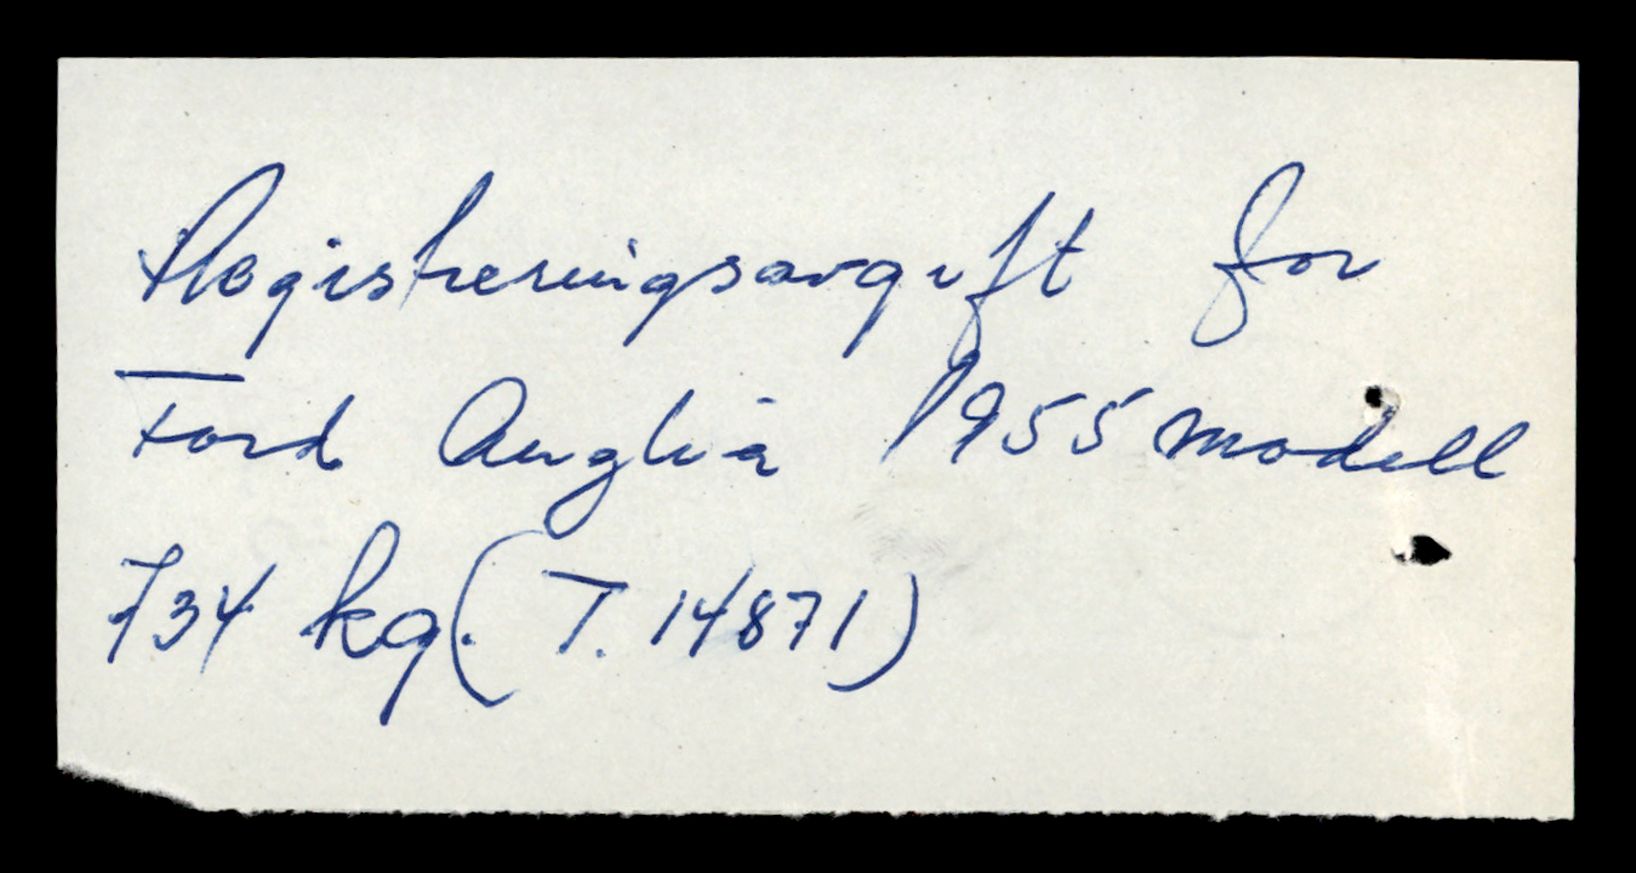 Registreringsavgift for
Ford Anglia 1955 modell
734 kg. (T. 14871)